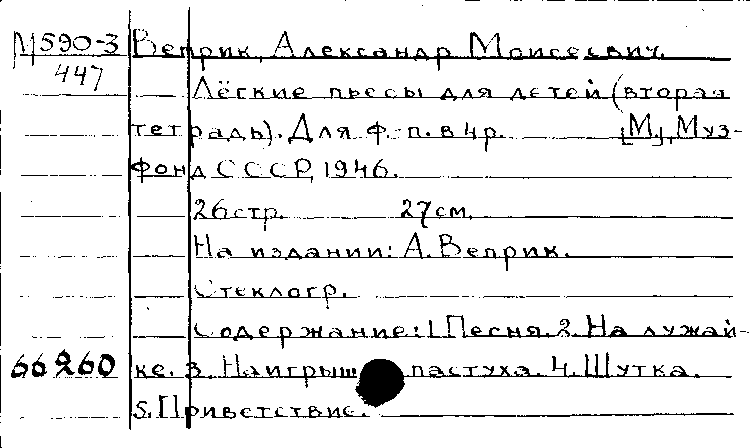 М590-3 Веприк, Александр Моисеевич.
447
Лёгкие пьесы для детей (вторая
тетрадь). Для ф-п. в 4 р. [М], Муз-
фонд СССР, 1946.
26 стр. 27 см.
На издании: А. Веприк.
Стеклогр.
Содержание: 1. Песня. 2. На лужай-
66260 ке. 3. Наигрыш пастуха. 4. Шутка.
5. Приветствие.